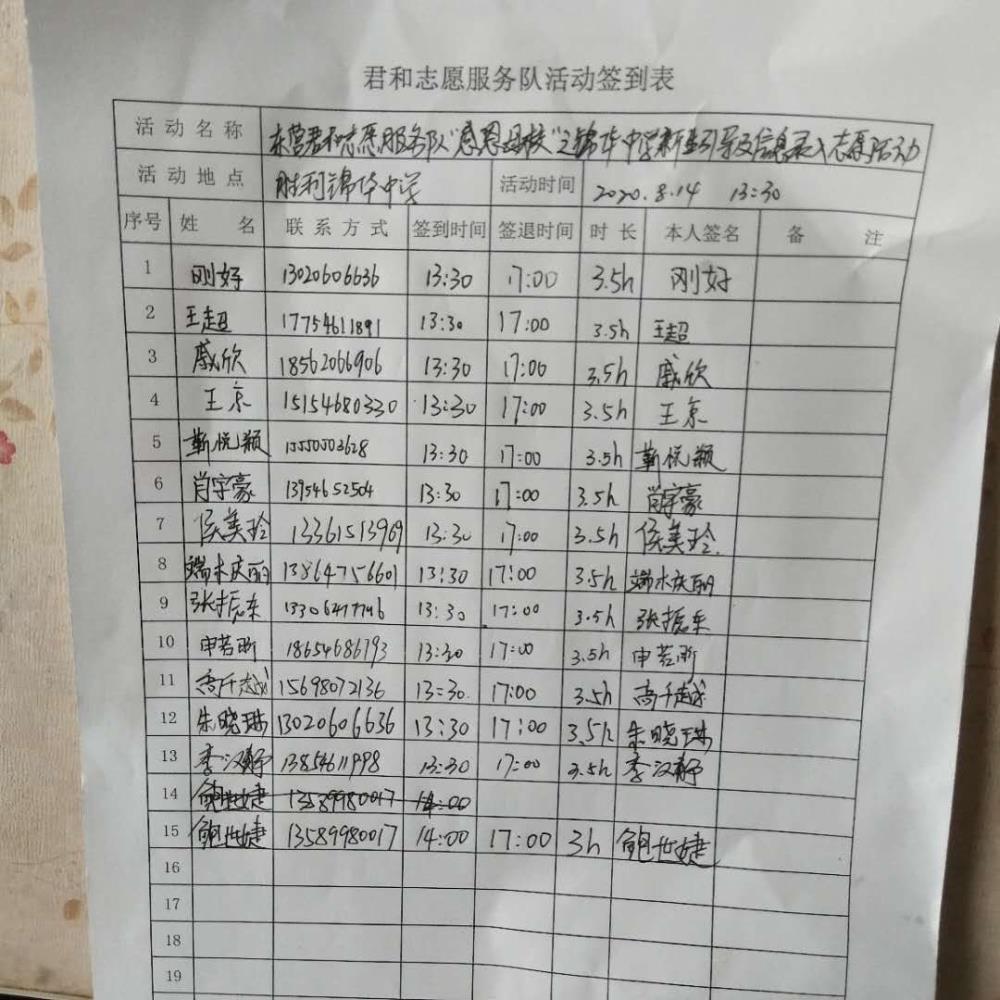 君和志愿服务队活动签到表
活动名称 东营君和志愿服务队"感恩母校"之锦华中学新生引导及信息录入志愿活动
活动地点 胜利锦华中学 活动时间 2020.8.14 13:30
序号 姓名 联系方式 签到时间 签退时间 时长 本人签名 备注
1 刚好 13020606636 13:30 17:00 3.5h 刚好
2 王超 17754611891 13:30 17:00 3.5h 王超
3 戚欣 18562066906 13:30 17:00 3.5h 戚欣
4 王京 15154680330 13:30 17:00 3.5h 王京
5 靳悦颖 15550503628 13:30 17:00 3.5h 靳悦颖
6 肖宇豪 13954652504 13:30 17:00 3.5h 肖宇豪
7 侯美玲 13361513969 13:30 17:00 3.5h 侯美玲
8 端木庆丽 13864756601 13:30 17:00 3.5h 端木庆丽
9 张振东 13:30 17:00 3.5h 张振东
10 申若昕 18654686793 13:30 17:00 3.5h 申若昕
11 高千越 15698072136 13:30 17:00 3.5h 高千越
12 朱晓琳 13020606636 13:30 17:00 3.5h 朱晓琳
13 李汉静 13854611998 13:30 17:00 3.5h 李汉静
14 鲍世婕 13589980017 14:00
15 鲍世婕 13589980017 14:00 17:00 3h 鲍世婕
16
17
18
19